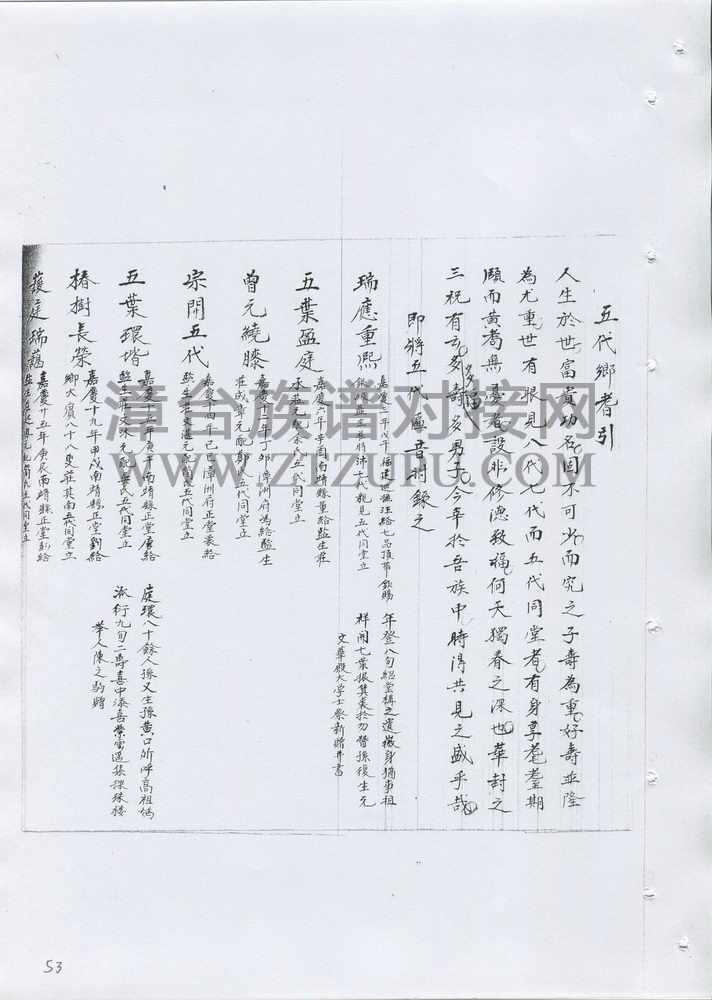 五代鄉耆引
人生於世富貴功名固不可少而究之子壽為重好壽並隆
為尤重世有恨見八代七代而五代同堂者有身享耄耋期
頤而黃耇無憂者設非修德致福何天獨眷之深也華封之
三祝有云多福多壽多男子今幸於吾族中時得共見之盛乎哉
即將五代匾音附錄之
瑞應重熙
嘉慶三年戊午福建巡撫汪給七品頂帶銀賜
五代同堂立
年登八旬紹堂構之遺徽身猶事祖
祥開七葉振箕裘於勿替孫復生元
文華殿大學士蔡新贈并書
五葉盈庭
嘉慶六年辛酉南靖縣董給監生莊
氏五代同堂立
曾元繞膝
嘉慶十二年丁卯漳洲府馮給監生
莊成章元配鄭氏五代同堂立
宗開五代
嘉慶十四年己巳漳洲府正堂裴給
監生莊文 元配 氏五代同堂立
五葉環堦
嘉慶十五年庚午南靖縣正堂 給
監生莊文 元配 氏五代同堂立
庭環八十餘人孫又生孫黃口所呼高祖媽
派衍九旬二壽喜中添喜 雲遙集探 樓
舉人陳之駒贈
椿樹長榮
嘉慶十九年甲戌南靖縣正堂劉給
鄉大賓八十八叟莊其南五代同堂立
萲庭瑞藹
嘉慶廿五年庚辰南靖縣正堂彭給
五代同堂立
漳台族谱对接网
WWW.ZIZUPU.COM
53